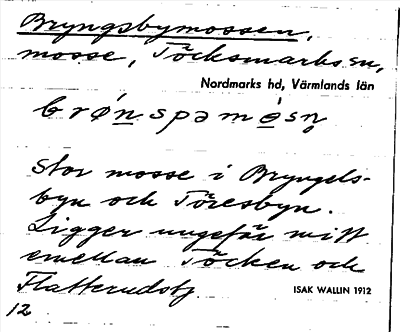 Bryngsbymossen,
mosse, Töcksmarks sn,
Nordmarks hd, Värmlands län
brø̀n.spəmòsn̥
Stor mosse i Bryngels-
byn och Töresbyn.
Ligger ungefär mitt
emellan Töcken och
Flatterudsbj.
ISAK WALLIN 1912
12